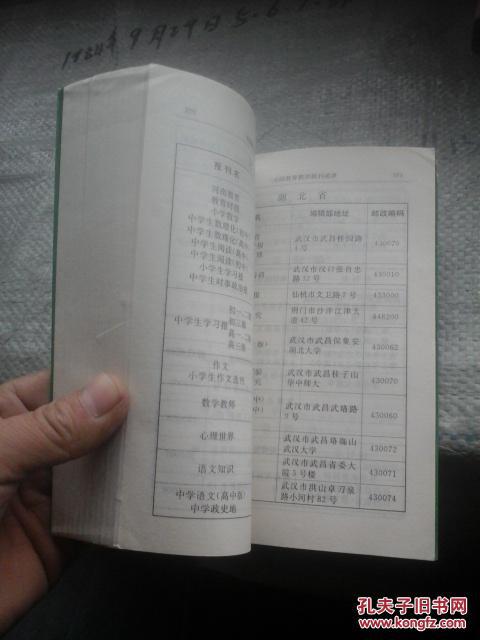 1984年9月29日
报刊名
河南教育
教育时报
小学数学
中学生数理化(初中)
中学生数理化(高中)
中学生阅读(高中)
中学生阅读(初中)
小学生学习报
中学生时事政治报
中学生学习报
初一二版
初三版
高一二版
高三版
作文
小学生作文选刊
数学教师
心理世界
语文知识
中学语文(高中版)
中学政史地
湖北省
编辑部地址
邮政编码
武汉市武昌桂园路
430070
武汉市汉口张自忠
路12号
430010
仙桃市文卫路7号
433000
荆门市沙洋江津大
道42号
448200
武汉市武昌保集安
湖北大学
430062
武汉市武昌桂子山
华中师大
430070
武汉市武昌武珞路
430060
武汉市武昌珞珈山
武汉大学
430072
武汉市武昌省委大
院5号楼
430071
武汉市洪山卓刀泉
路小河村82号
430074
孔夫子旧书网
www.kongfz.com